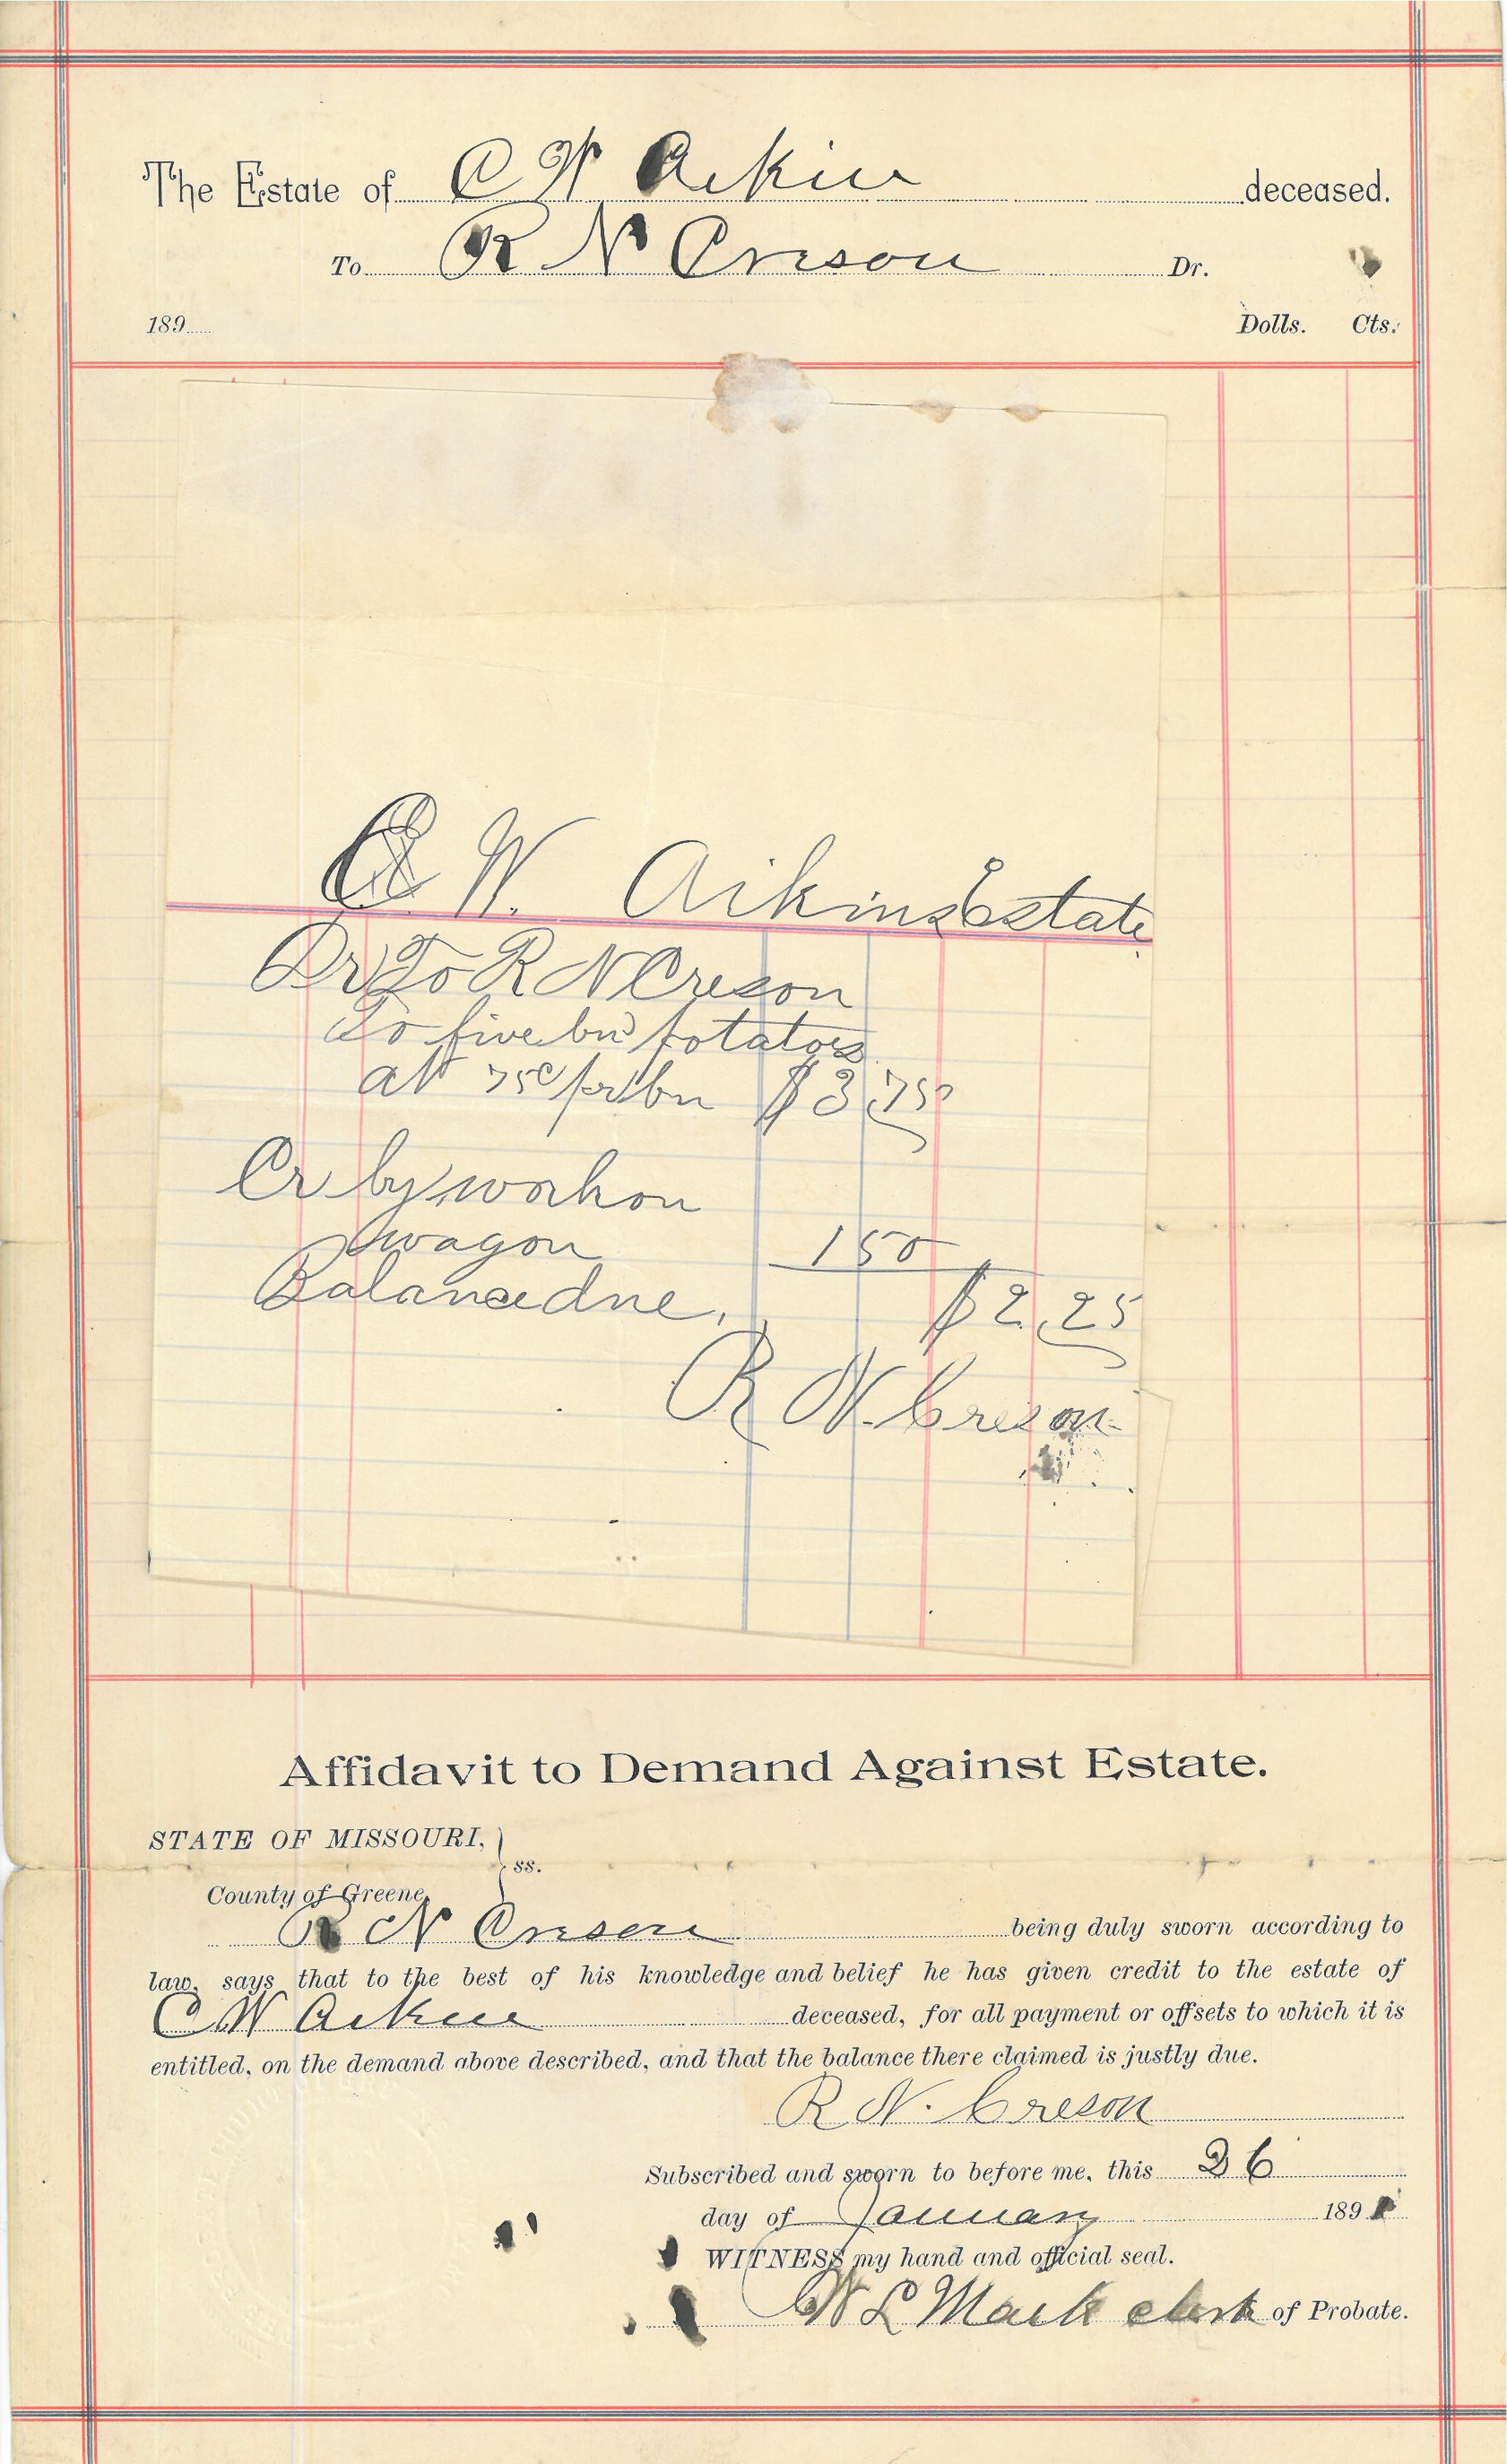 The Estate of C W Aikin deceased.
To R N Creson Dr.
189 Dolls. Cts.
W. Aikins Estate
Dr To R N Creson
To five bu potatoes
at 75c per bu $3,75
Cr by work on
wagon 150
Balance due, $2,25
R N. Creson
Affidavit to Demand Against Estate.
STATE OF MISSOURI,
ss.
County of Greene,
R N Creson being duly sworn according to
law, says that to the best of his knowledge and belief he has given credit to the estate of
C W Aikin deceased, for all payment or offsets to which it is
entitled, on the demand above described, and that the balance there claimed is justly due.
R N. Creson
Subscribed and sworn to before me, this 26
day of January 189
WITNESS my hand and official seal.
W L Mack clerk of Probate.